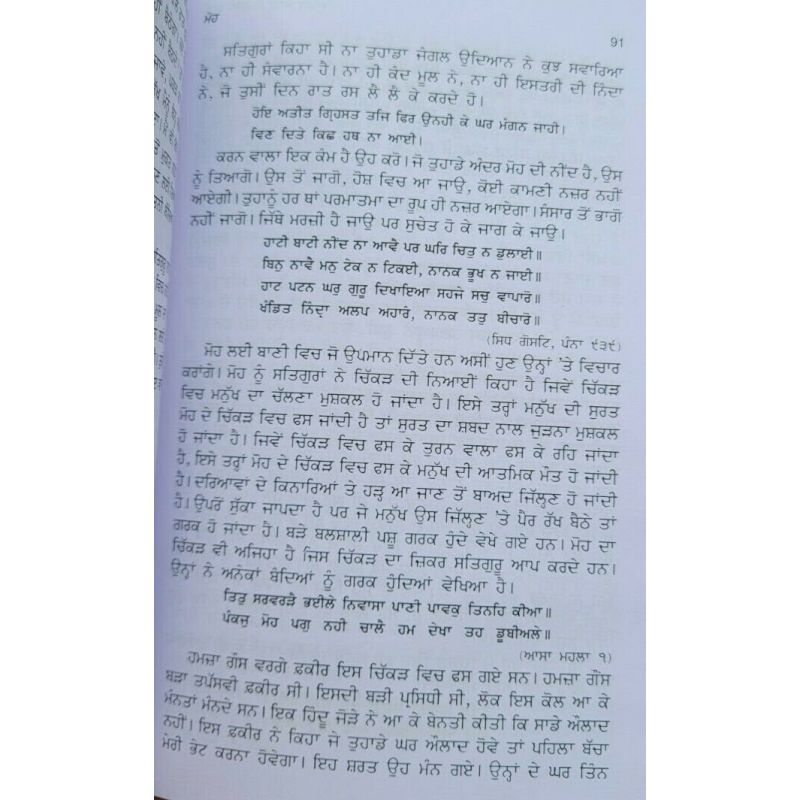 ਮੋਹ
91
ਸਤਿਗੁਰਾਂ ਕਿਹਾ ਸੀ ਨਾ ਤੁਹਾਡਾ ਜੰਗਲ ਉਦਿਆਨ ਨੇ ਕੁਝ ਸਵਾਰਿਆ
ਹੈ, ਨਾ ਹੀ ਸੰਵਾਰਨਾ ਹੈ। ਨਾ ਹੀ ਕੰਦ ਮੂਲ ਨੇ, ਨਾ ਹੀ ਇਸਤਰੀ ਦੀ ਨਿੰਦਾ
ਨੇ, ਜੋ ਤੁਸੀਂ ਦਿਨ ਰਾਤ ਰਸ ਲੈ ਲੈ ਕੇ ਕਰਦੇ ਹੋ।
ਹੋਇ ਅਤੀਤ ਗ੍ਰਿਹਸਤ ਤਜਿ ਫਿਰ ਉਨਹੀ ਕੇ ਘਰ ਮੰਗਨ ਜਾਹੀ।
ਵਿਣ ਦਿਤੇ ਕਿਛ ਹਥ ਨਾ ਆਈ।
ਕਰਨ ਵਾਲਾ ਇਕ ਕੰਮ ਹੈ ਉਹ ਕਰੋ। ਜੋ ਤੁਹਾਡੇ ਅੰਦਰ ਮੋਹ ਦੀ ਨੀਂਦ ਹੈ, ਉਸ
ਨੂੰ ਤਿਆਗੋ। ਉਸ ਤੋਂ ਜਾਗੋ, ਹੋਸ਼ ਵਿਚ ਆ ਜਾਉ, ਕੋਈ ਕਾਮਣੀ ਨਜ਼ਰ ਨਹੀਂ
ਆਏਗੀ। ਤੁਹਾਨੂੰ ਹਰ ਥਾਂ ਪਰਮਾਤਮਾ ਦਾ ਰੂਪ ਹੀ ਨਜ਼ਰ ਆਏਗਾ। ਸੰਸਾਰ ਤੋਂ ਭਾਗੋ
ਨਹੀਂ ਜਾਗੋ। ਜਿੱਥੇ ਮਰਜ਼ੀ ਹੈ ਜਾਉ ਪਰ ਸੁਚੇਤ ਹੋ ਕੇ ਜਾਗ ਕੇ ਜਾਉ।
ਹਾਟੀ ਬਾਟੀ ਨੀਂਦ ਨਾ ਆਵੈ ਪਰ ਘਰਿ ਚਿਤੁ ਨ ਡੁਲਾਈ॥
ਬਿਨੁ ਨਾਵੈ ਮਨੁ ਟੇਕ ਨ ਟਿਕਈ, ਨਾਨਕ ਭੂਖ ਨ ਜਾਈ॥
ਹਾਟ ਪਟਨ ਘਰੁ ਗੁਰੂ ਦਿਖਾਇਆ ਸਹਜੇ ਸਚੁ ਵਾਪਾਰੋ॥
ਖੰਡਿਤ ਨਿੰਦ੍ਰਾ ਅਲਪ ਅਹਾਰੰ, ਨਾਨਕ ਤਤੁ ਬੀਚਾਰੋ॥
(ਸਿਧ ਗੋਸਟਿ, ਪੰਨਾ ੯੩੯)
ਮੋਹ ਲਈ ਬਾਣੀ ਵਿਚ ਜੋ ਉਪਮਾਨ ਦਿੱਤੇ ਹਨ ਅਸੀਂ ਹੁਣ ਉਨ੍ਹਾਂ 'ਤੇ ਵਿਚਾਰ
ਕਰਾਂਗੇ। ਮੋਹ ਨੂੰ ਸਤਿਗੁਰਾਂ ਨੇ ਚਿੱਕੜ ਦੀ ਨਿਆਈਂ ਕਿਹਾ ਹੈ ਜਿਵੇਂ ਚਿੱਕੜ
ਵਿਚ ਮਨੁੱਖ ਦਾ ਚੱਲਣਾ ਮੁਸ਼ਕਲ ਹੋ ਜਾਂਦਾ ਹੈ। ਇਸੇ ਤਰ੍ਹਾਂ ਮਨੁੱਖ ਦੀ ਸੁਰਤ
ਮੋਹ ਦੇ ਚਿੱਕੜ ਵਿਚ ਫਸ ਜਾਂਦੀ ਹੈ ਤਾਂ ਸੁਰਤ ਦਾ ਸ਼ਬਦ ਨਾਲ ਜੁੜਨਾ ਮੁਸ਼ਕਲ
ਹੋ ਜਾਂਦਾ ਹੈ। ਜਿਵੇਂ ਚਿੱਕੜ ਵਿਚ ਫਸ ਕੇ ਤੁਰਨ ਵਾਲਾ ਫਸ ਕੇ ਰਹਿ ਜਾਂਦਾ
ਹੈ, ਇਸੇ ਤਰ੍ਹਾਂ ਮੋਹ ਦੇ ਚਿੱਕੜ ਵਿਚ ਫਸ ਕੇ ਮਨੁੱਖ ਦੀ ਆਤਮਿਕ ਮੌਤ ਹੋ ਜਾਂਦੀ
ਹੈ। ਦਰਿਆਵਾਂ ਦੇ ਕਿਨਾਰਿਆਂ ਤੇ ਹੜ੍ਹ ਆ ਜਾਣ ਤੋਂ ਬਾਅਦ ਜਿੱਲ੍ਹਣ ਹੋ ਜਾਂਦੀ
ਹੈ। ਉਪਰੋਂ ਸੁੱਕਾ ਜਾਪਦਾ ਹੈ ਪਰ ਜੇ ਮਨੁੱਖ ਉਸ ਜਿੱਲ੍ਹਣ 'ਤੇ ਪੈਰ ਰੱਖ ਬੈਠੇ ਤਾਂ
ਗਰਕ ਹੋ ਜਾਂਦਾ ਹੈ। ਬੜੇ ਬਲਸ਼ਾਲੀ ਪਸ਼ੂ ਗਰਕ ਹੁੰਦੇ ਵੇਖੇ ਗਏ ਹਨ। ਮੋਹ ਦਾ
ਚਿੱਕੜ ਵੀ ਅਜਿਹਾ ਹੈ ਜਿਸ ਚਿੱਕੜ ਦਾ ਜ਼ਿਕਰ ਸਤਿਗੁਰੂ ਆਪ ਕਰਦੇ ਹਨ।
ਉਨ੍ਹਾਂ ਨੇ ਅਨੇਕਾਂ ਬੰਦਿਆਂ ਨੂੰ ਗਰਕ ਹੁੰਦਿਆਂ ਵੇਖਿਆ ਹੈ।
ਤਿਤੁ ਸਰਵਰੜੈ ਭਈਲੇ ਨਿਵਾਸਾ ਪਾਣੀ ਪਾਵਕੁ ਤਿਨਹਿ ਕੀਆ॥
ਪੰਕਜੁ ਮੋਹ ਪਗੁ ਨਹੀ ਚਾਲੈ ਹਮ ਦੇਖਾ ਤਹ ਡੂਬੀਅਲੇ॥
(ਆਸਾ ਮਹਲਾ ੧)
ਹਮਜ਼ਾ ਗੌਂਸ ਵਰਗੇ ਫ਼ਕੀਰ ਇਸ ਚਿੱਕੜ ਵਿਚ ਫਸ ਗਏ ਸਨ। ਹਮਜ਼ਾ ਗੌਂਸ
ਬੜਾ ਤਪੱਸਵੀ ਫ਼ਕੀਰ ਸੀ। ਇਸਦੀ ਬੜੀ ਪ੍ਰਸਿਧੀ ਸੀ, ਲੋਕ ਇਸ ਕੋਲ ਆ ਕੇ
ਮੰਨਤਾਂ ਮੰਨਦੇ ਸਨ। ਇਕ ਹਿੰਦੂ ਜੋੜੇ ਨੇ ਆ ਕੇ ਬੇਨਤੀ ਕੀਤੀ ਕਿ ਸਾਡੇ ਔਲਾਦ
ਨਹੀਂ। ਇਸ ਫ਼ਕੀਰ ਨੇ ਕਿਹਾ ਜੇ ਤੁਹਾਡੇ ਘਰ ਔਲਾਦ ਹੋਵੇ ਤਾਂ ਪਹਿਲਾ ਬੱਚਾ
ਮੇਰੀ ਭੇਟ ਕਰਨਾ ਹੋਵੇਗਾ। ਇਹ ਸ਼ਰਤ ਉਹ ਮੰਨ ਗਏ। ਉਨ੍ਹਾਂ ਦੇ ਘਰ ਤਿੰਨ